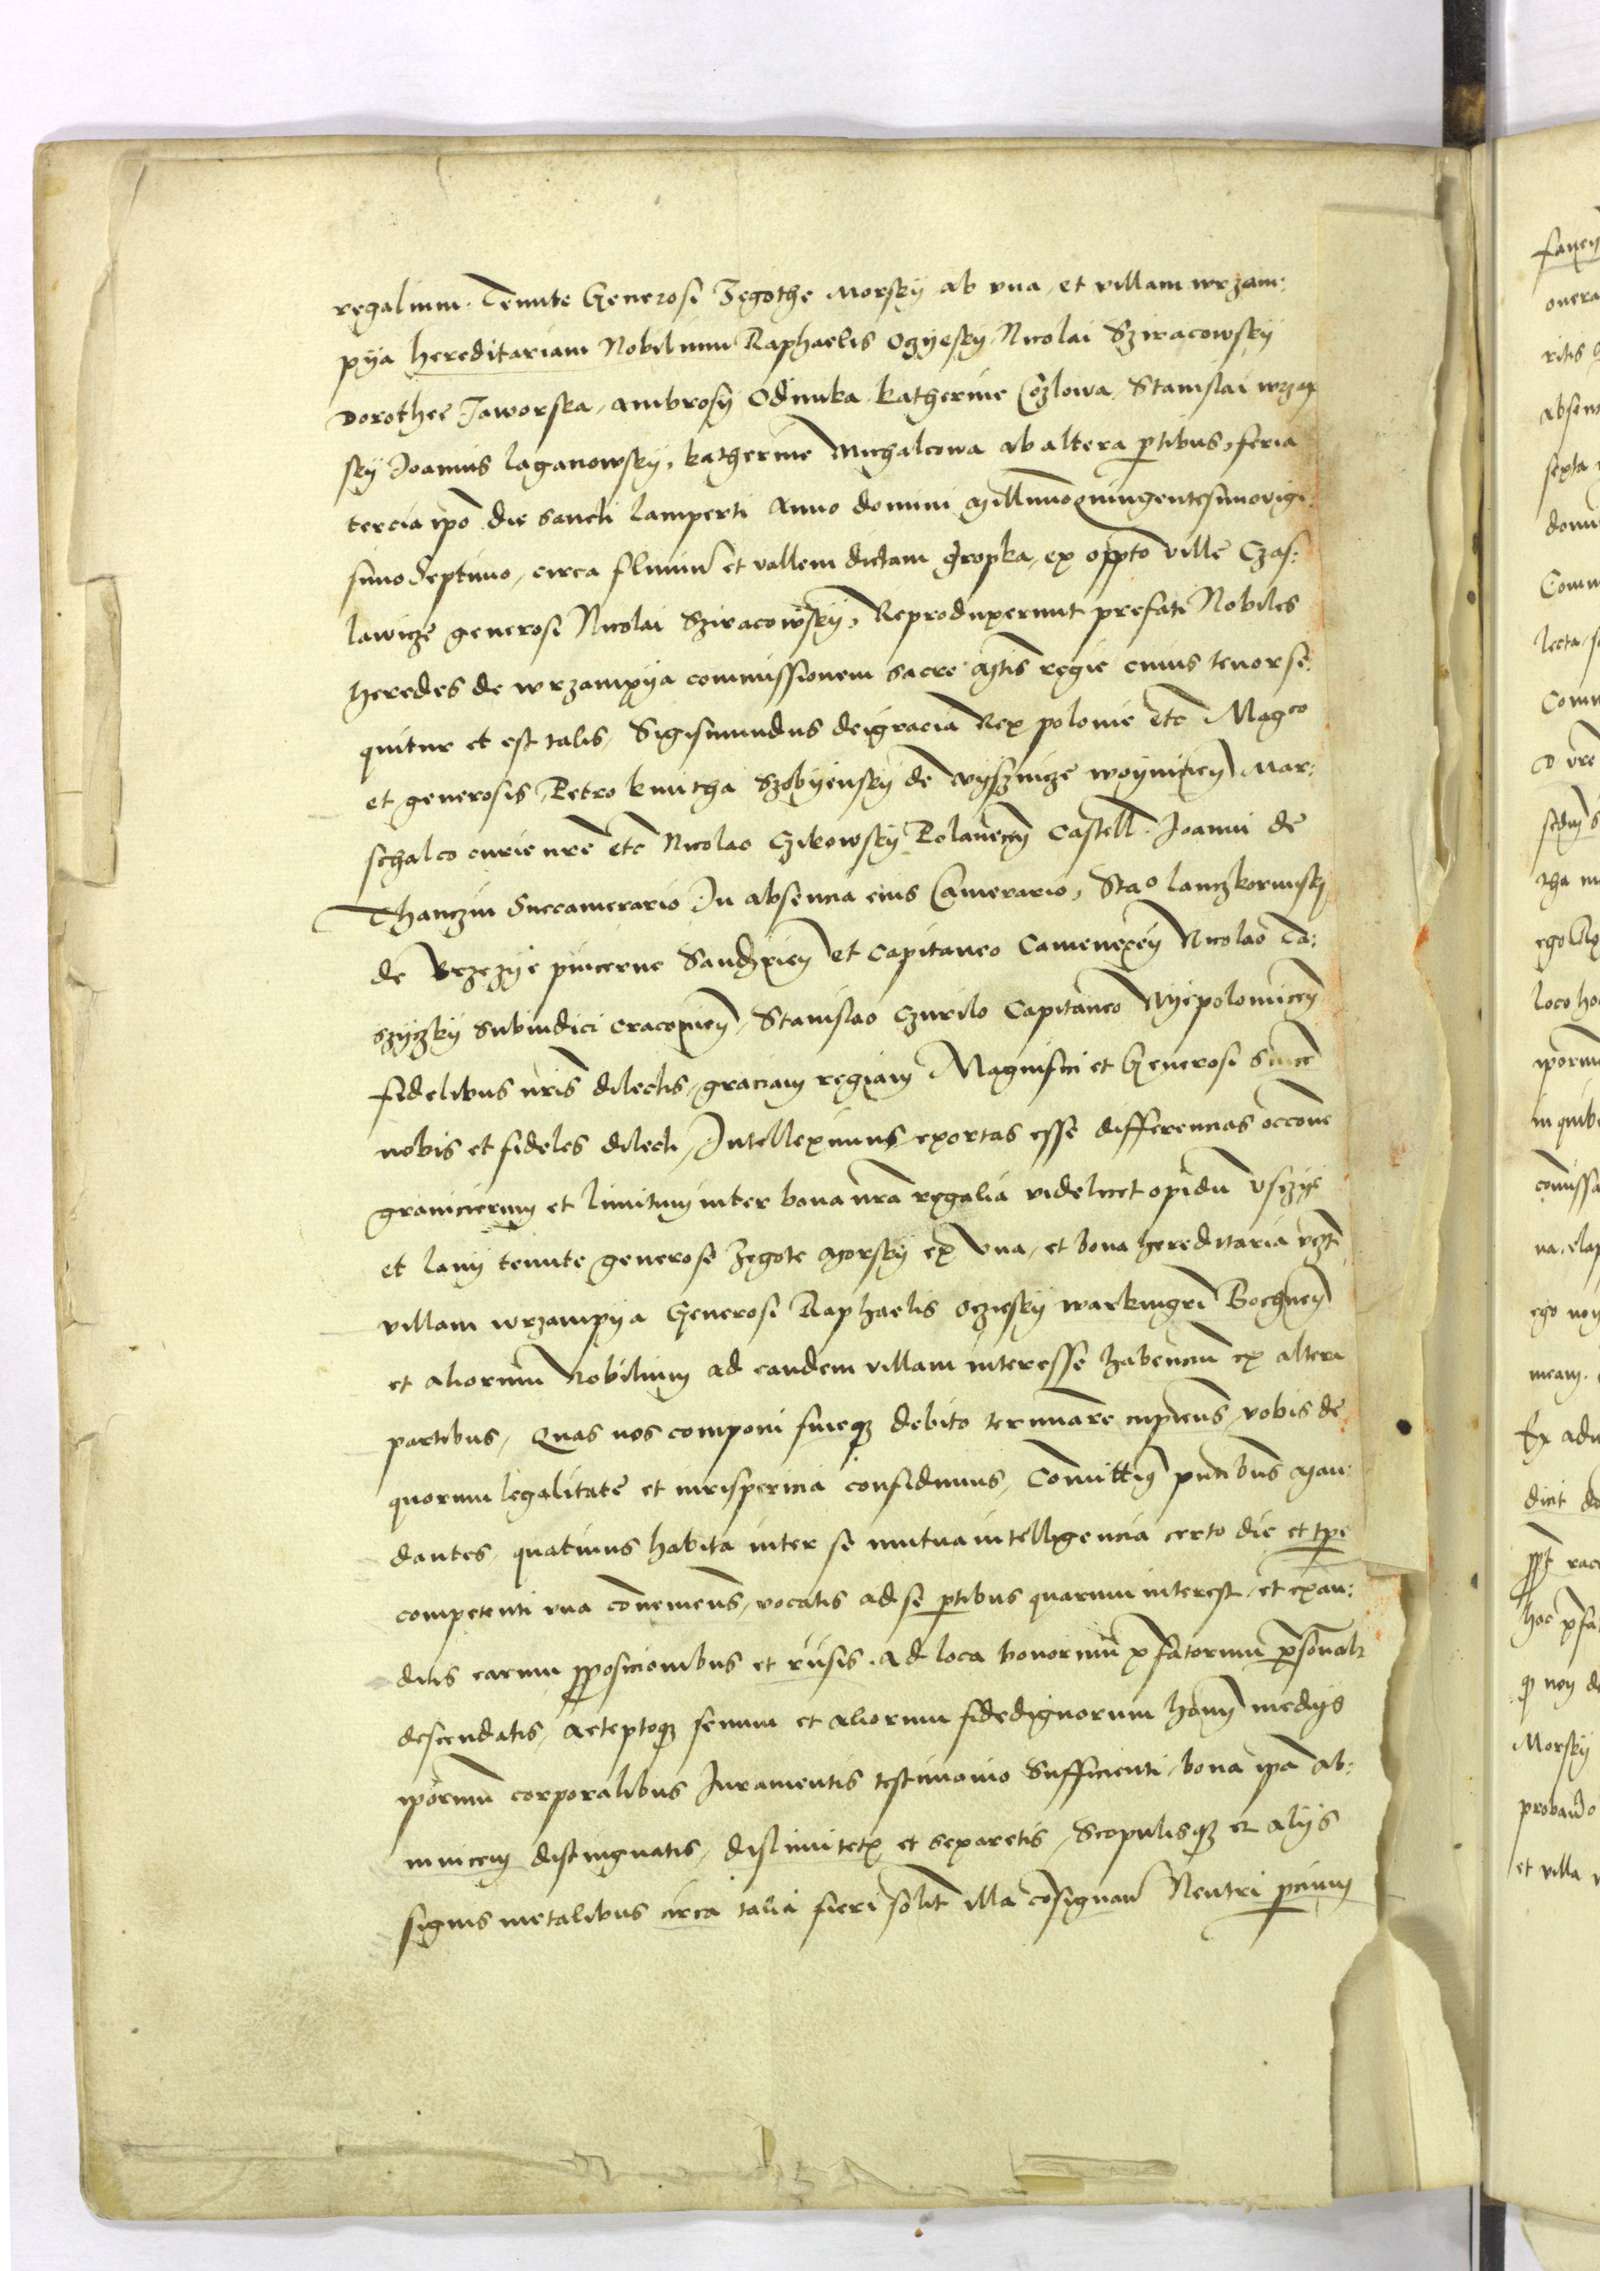 regalium. Tenute Generosi Zegothe Morsky ab vna, et villam wrzam:
pya hereditariam Nobilium Raphaelis Oczyesky Nicolai Sziracowsky
Dorothee Jaworska, Ambrosy Odnuka Katherine Cozlowa Stanislai wrzap
sky Joannis Laganowsky, Katherine Michalcowa ab altera ptibus, feria
tercia ipo die Sancti Lamperti Anno domini Millmoquingentesimovigi
simo Septimo, circa fluuiu et vallem dictam Gropka, ex oppto ville Czas:
lawicze generosi Nicolai Sziracowsky, Reproduxerunt prefati Nobiles
heredes de wrzampya commissionem Sacre Mtis regie cuius tenor se:
quitur et est talis, Sigismundus dei gracia Rex polonie etc Magco
et generosis, Petro kmitha Szobyensky de wysznicze woyniciey Mar:
schalco curie nre etc Nicolao Czikowsky Polanecij Castell. Joanni de
Thanczin Succamerario In absencia eius Camerario, Stao Lanczkorunsky
de Brzezye pincerne Sandziriey et Capitaneo Camenecey Nicolao Ta:
szyczky Subiudici cracouiey, Stanislao Czurilo Capitaneo Nyepolomicey
fidelibus nris dilectis, graciam regiam Magnifici et Generosi Since
nobis et fideles dilecti, Intelleximus exortas esse differencias occone
granicierum et limitum inter bona nra regalia videlicet opidu Vsczye
et lany tenute generose Zegote Morsky ex vna, et bona hereditaria vzt
villam wrzampya Generosi Raphaelis Oczesky warkmgri Bochney
et aliorum Nobilium ad eandem villam interesse habenciu ex altera
partibus, Quas nos componi fineqz debito terminare cupiens, vobis de
quorum legalitate et iurisperitia confidimus, Comittim pntibus Man:
dantes, quatinus habita inter se mutua intelligencia certo die et tpe
competenti vna conenieus, vocatis ad se ptibus quarum interest, et exau:
ditis earum pposicionibus et rusis. Ad loca bonorum pfatorum psonalr
descendatis, Acceptoqz senum et aliorum fidedignorum homi medys
iporum corporalibus Juramentis testimonio Sufficienti, bona ipa ab:
inuicem distinguatis, dislimitetis et separetis, Scopulisqz et alys
signis metalibus circa talia fieri solit illa cosignan Neutri pcium